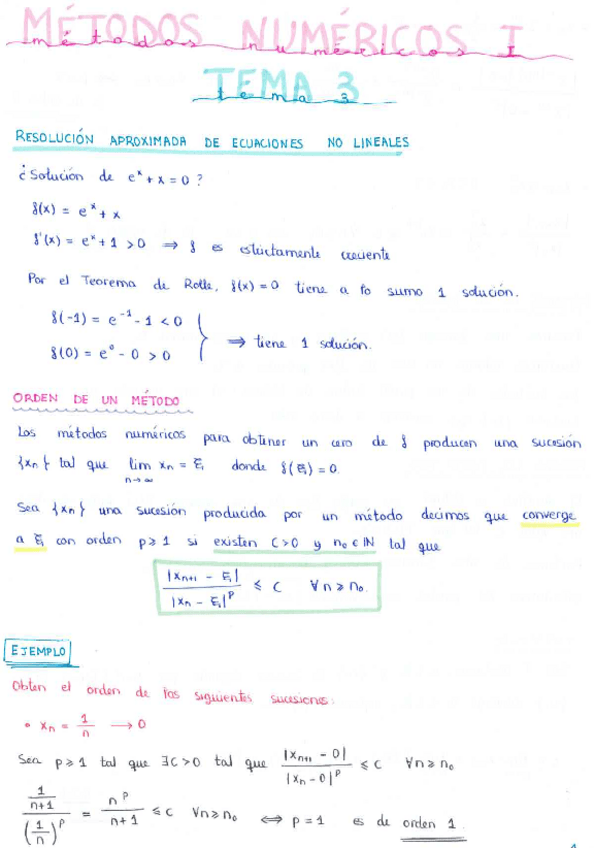 MÉTODOS NUMÉRICOS I
métodos numéricos I
TEMA 3
tema 3
RESOLUCIÓN APROXIMADA DE ECUACIONES NO LINEALES
¿Solución de eˣ + x = 0?
f(x) = eˣ + x
f'(x) = eˣ + 1 > 0 ⟹ f es estrictamente creciente
Por el Teorema de Rolle, f(x) = 0 tiene a lo sumo 1 solución.
f(-1) = e⁻¹ - 1 < 0
⟹ tiene 1 solución.
f(0) = e⁰ - 0 > 0
ORDEN DE UN MÉTODO
Los métodos numéricos para obtener un cero de f producen una sucesión
{xₙ} tal que lim xₙ = ξ donde f(ξ) = 0.
n→∞
Sea {xₙ} una sucesión producida por un método decimos que converge
a ξ con orden p ≥ 1 si existen C > 0 y n₀ ∈ ℕ tal que
|xₙ₊₁ - ξ| / |xₙ - ξ|ᵖ ≤ C ∀n ≥ n₀.
EJEMPLO
Obtén el orden de las siguientes sucesiones:
• xₙ = 1/n → 0
Sea p ≥ 1 tal que ∃C > 0 tal que |xₙ₊₁ - 0| / |xₙ - 0|ᵖ ≤ C ∀n ≥ n₀
(1/(n+1)) / (1/n)ᵖ = nᵖ/(n+1) ≤ C ∀n ≥ n₀ ⟺ p = 1 es de orden 1.